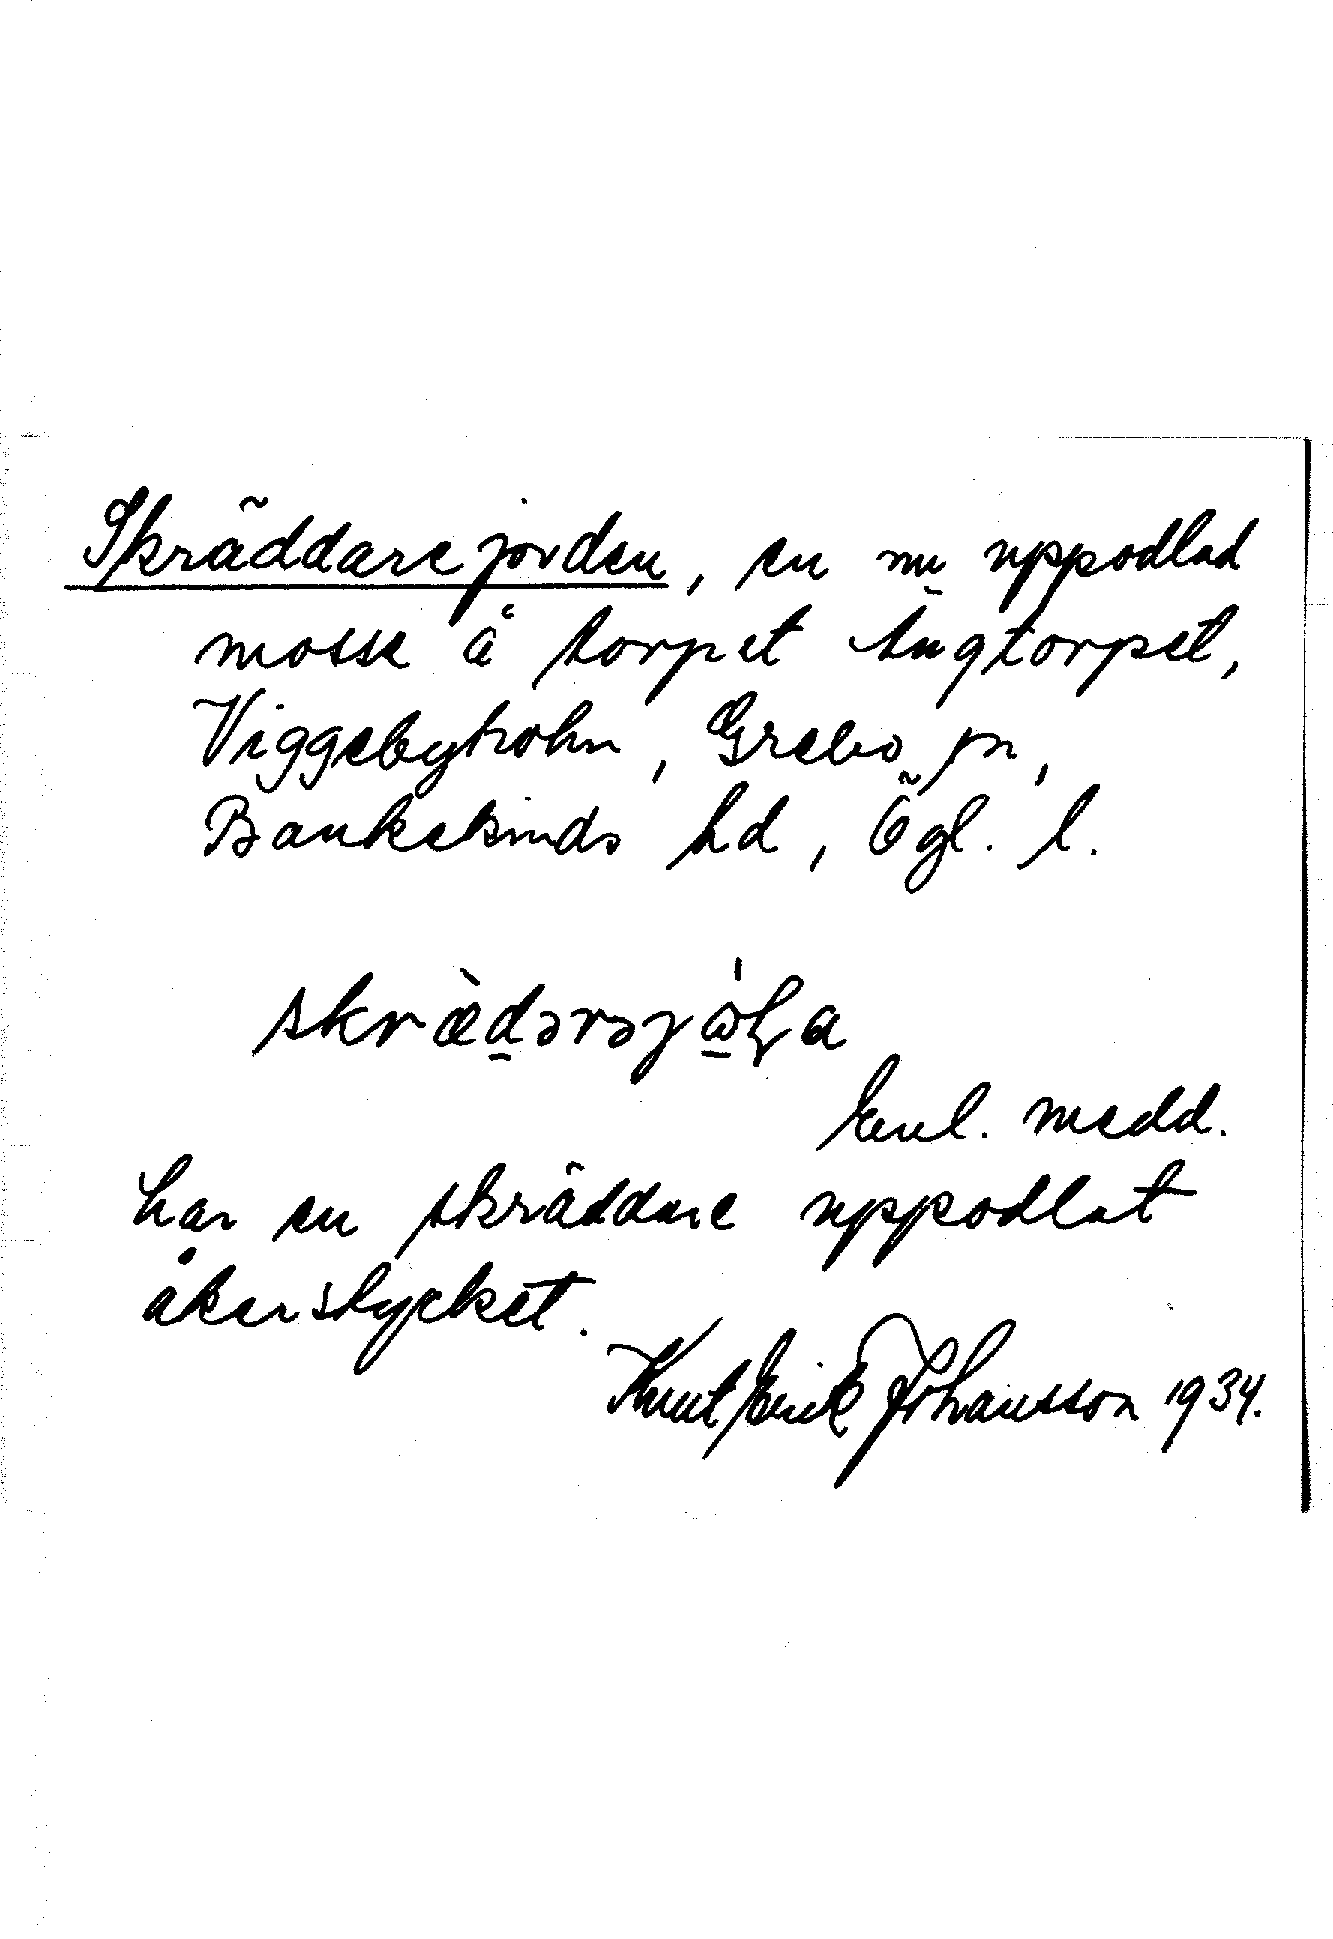 Skräddarejorden, en nu uppodlad
mosse å torpet Ängtorpet,
Viggebyholm, Grebo sn,
Bankekinds hd, Ögl. l.
skræ̀dərəjὼɽa
Enl. medd.
har en skräddare uppodlat
åkerstycket.
Knut Erik Johansson 1934.